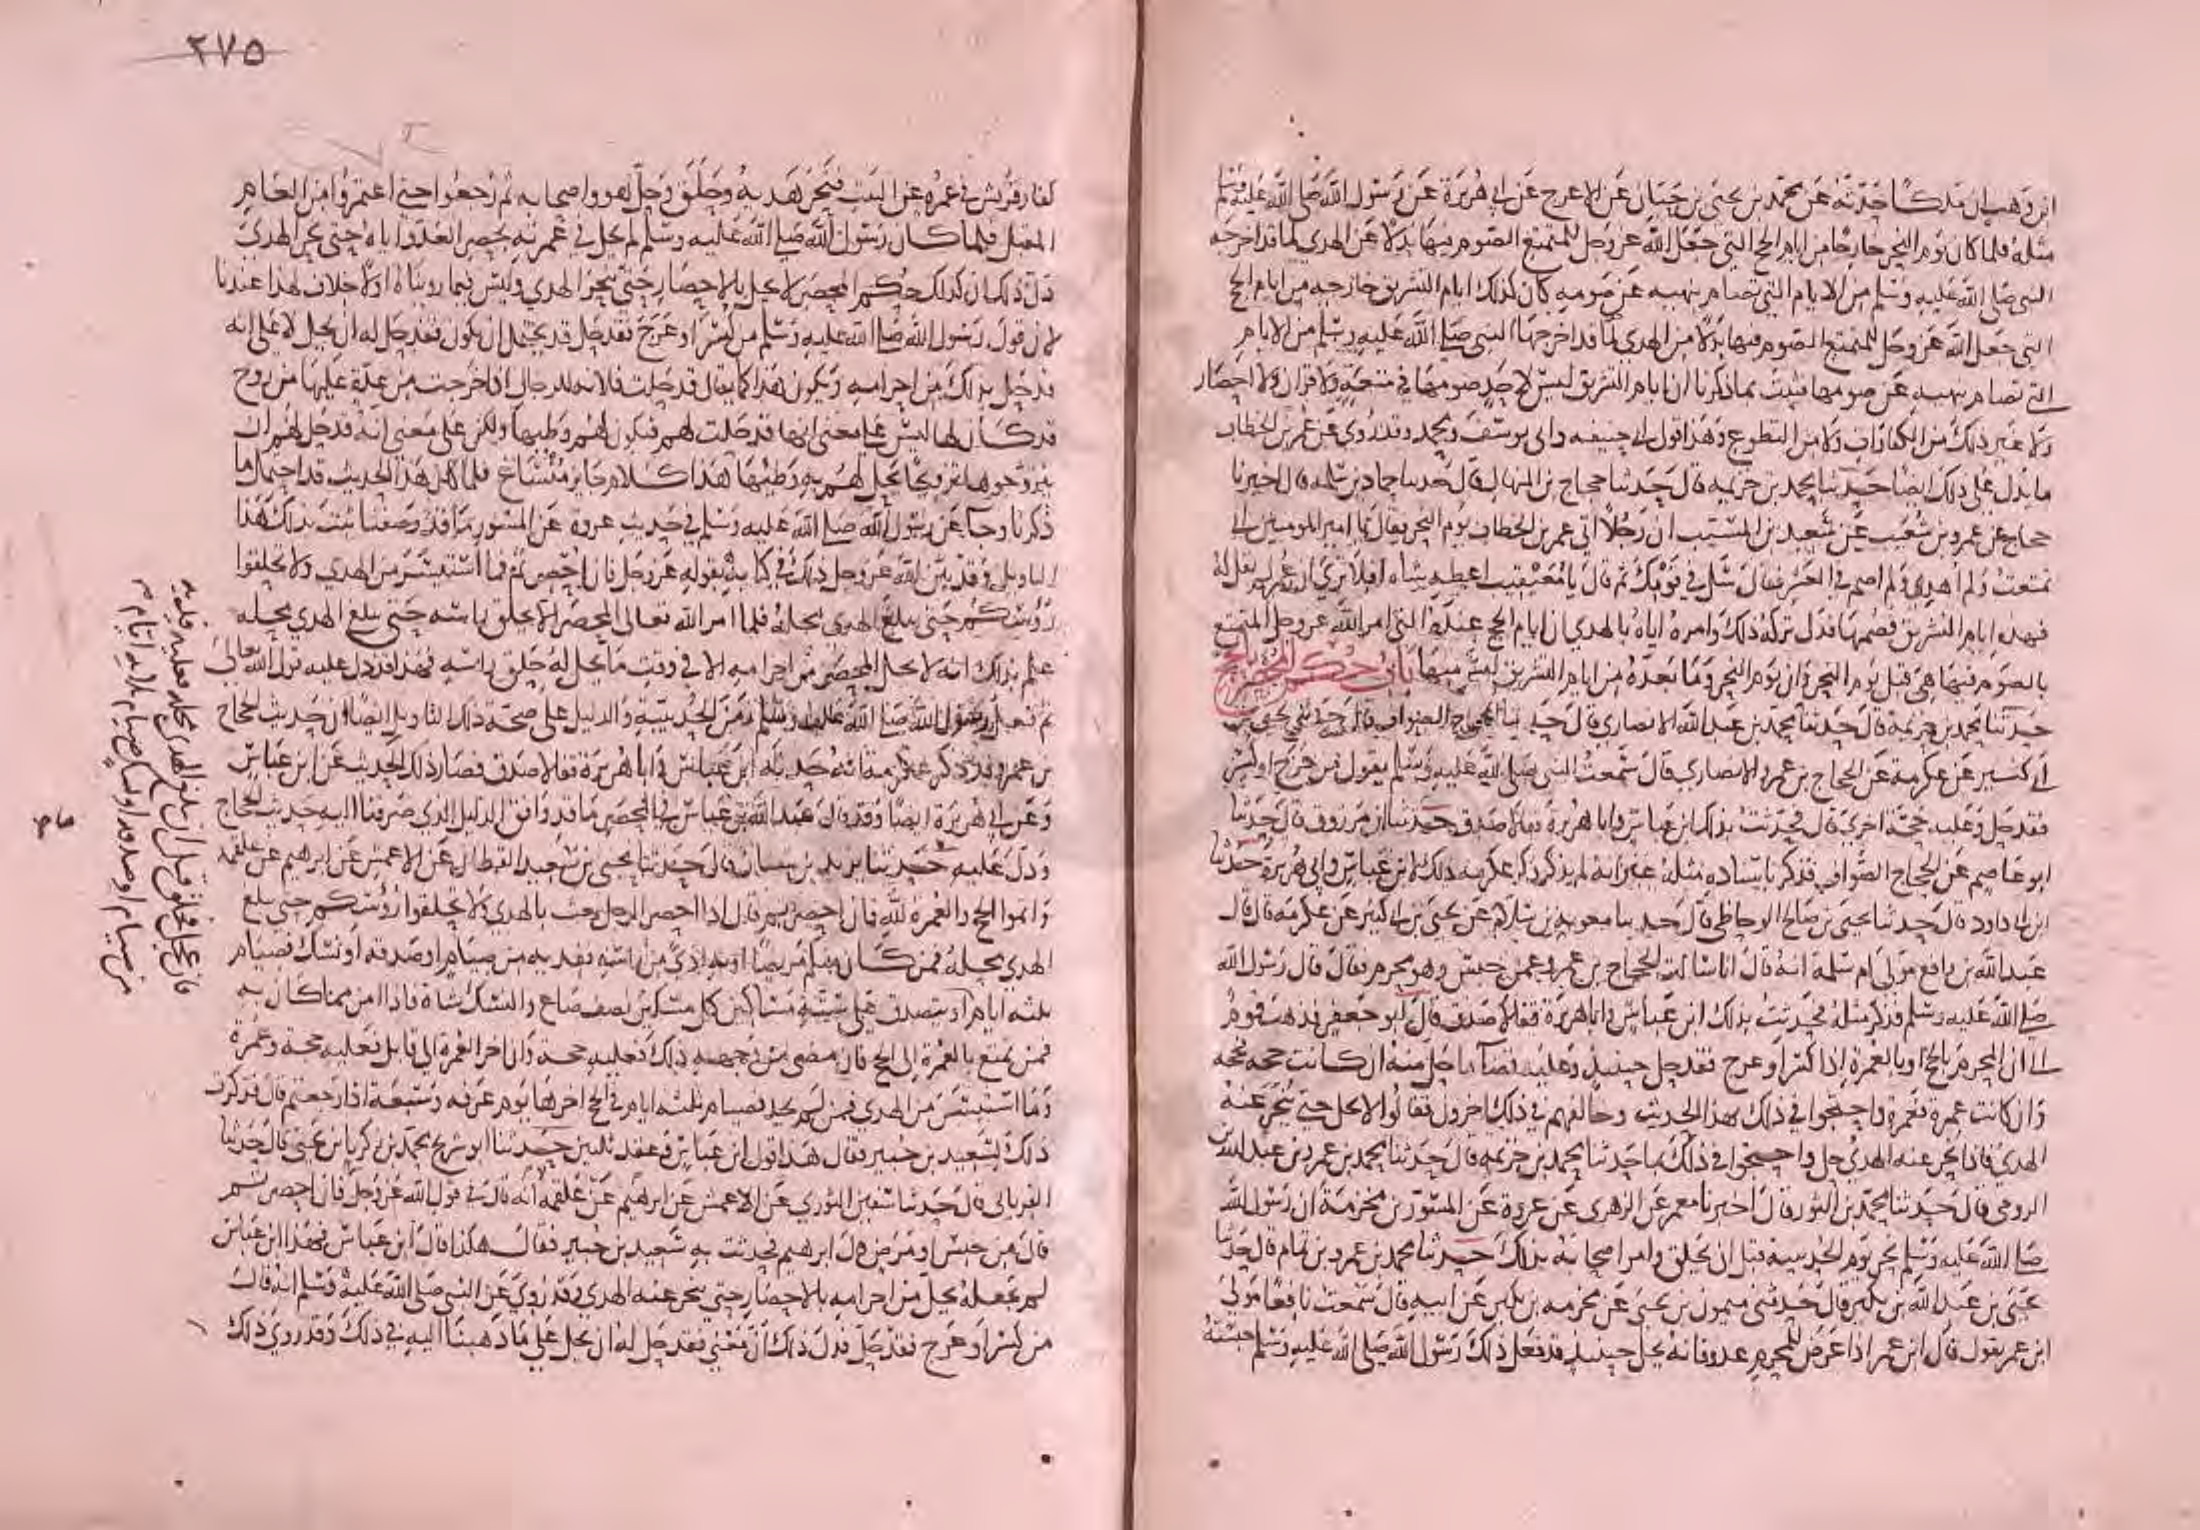 ابن وهب ان ملكا حدثه عن محمد بن يحيى بن حبان عن الاعرج عن ابي هريرة عن رسول الله صلى الله عليه وسلم
مثله فلما كان يوم النحر خارجا من ايام الحج التي جعل الله عز وجل للمتمتع الصوم فيها بدلا عن الهدي لما قد اخرجه
النبي صلى الله عليه وسلم من الايام التي تصام بنهيه عن صومه كان كذلك ايام التشريق خارجه من ايام الحج
التي جعل الله عز وجل للمتمتع الصوم فيها بدلا من الهدي لما قد اخرجها النبي صلى الله عليه وسلم من الايام
التي تصام بنهيه عن صومها فثبت بما ذكرنا ان ايام التشريق ليس لاحد صومها في متعة ولا قران ولا احصار
ولا غير ذلك من الكفارات ولا من التطوع وهذا قول ابي حنيفه وابي يوسف ومحمد وقد روي عن عمر بن الخطاب
ما يدل على ذلك ايضا حدثنا محمد بن خزيمه قال حدثنا حجاج بن المنهال قال حدثنا حماد بن سلمه قال اخبرنا
حجاج عن عمرو بن شعيب عن سعيد بن المسيب ان رجلا اتى عمر بن الخطاب يوم النحر فقال يا امير المومنين اني
تمتعت ولم اهدي ولم اصم في العشر فقال سل في قومك ثم قال يا معيقيب اعطيه شاه افلا ترى ان عمر لم يقل له
فهذه ايام التشريق فصمها فدل تركه ذلك وامره اياه بالهدي ان ايام الحج عنده التي امر الله عز وجل المتمتع
بالصوم فيها هي قبل يوم النحر وان يوم النحر وما بعده من ايام التشريق ليس منها باب حكم المحصر بالحج
حدثنا محمد بن خزيمة قال حدثنا محمد بن عبد الله الانصاري قال حدثنا الحجاج الصواف قال حدثني يحيى بن
ابي كثير عن عكرمة عن الحجاج بن عمرو الانصاري قال سمعت النبي صلى الله عليه وسلم يقول من عرج او كسر
فقد حل وعليه حجة اخرى قال فحدثت بذلك ابن عباس وابا هريرة فقالا صدق حدثنا ابن مرزوق قال حدثنا
ابو عاصم عن الحجاج الصواف فذكر باسناده مثله غير انه لم يذكر ذكر عكرمه ذلك لابن عباس وابي هريرة حدثنا
ابن ابي داود قال حدثنا يحيى بن صالح الوحاظي قال حدثنا معوية بن سلام عن يحيى بن ابي كثير عن عكرمه قال قال
عبد الله بن رافع مولى ام سلمة انه قال انا سالت الحجاج بن عمرو عمن حبس وهو محرم فقال قال رسول الله
صلى الله عليه وسلم فذكر مثله فحدثت بذلك ابن عباس وابا هريرة فقالا صدق قال ابو جعفر فذهب قوم
الى ان المحرم بالحج او بالعمرة اذا كسر او عرج فقد حل حينيذ وعليه قضآ ما حل منه ان كانت حجه فحجه
وان كانت عمرة فعمرة واحتجوا في ذلك بهذا الحديث وخالفهم في ذلك اخرون فقالوا لا يحل حتى ينحر عنه
الهدي فاذا نحر عنه الهدي حل واحتجوا في ذلك بما حدثنا محمد بن خزيمه قال حدثنا محمد بن عمر بن عبد الله بن
الرومي قال حدثنا محمد بن الثور قال اخبرنا معمر عن الزهري عن عروة عن المسور بن مخرمة ان رسول الله
صلى الله عليه وسلم نحر يوم الحديبية قبل ان يحلق وامر اصحابه بذلك حدثنا محمد بن عمرو بن تمام قال حدثنا
يحيى بن عبد الله بن بكير قال حدثني ميمون بن يحيى عن مخرمه بن بكير عن ابيه قال سمعت نافعا مولى
ابن عمر يقول قال ابن عمر اذا عرض للمحرم عدو فانه يحل حينيذ قد فعل ذلك رسول الله صلى الله عليه وسلم حبسته
٢٧٥
كفار قريش في عمره عن البيت فنحر هديه وحلق وحل هو واصحابه ثم رجعوا حتى اعتمروا من العام
المقبل فلما كان رسول الله صلى الله عليه وسلم لم يحل في عمرته بحصر العدو اياه حتى نحر الهدي
دل ذلك ان كذلك حكم المحصر لا يحل بالاحصار حتى ينحر الهدي وليس فيما رويناه اولا خلاف لهذا عندنا
لان قول رسول الله صلى الله عليه وسلم من كسر او عرج فقد حل قد يحتمل ان يكون فقد حل له ان يحل لا على انه
قد حل بذلك من احرامه ويكون هذا كما يقال قد حلت فلانه للرجال اذا خرجت من عدة عليها من زوج
قد كان لها ليس على معنى انها قد حلت لهم فيكون لهم وطيها ولكن على معنى انه قد حل لهم ان
يتزوجوها تزويجا يحل لهم به وطيها هذا كلام جايز مستساغ فلما كان هذا الحديث قد احتمل ما
ذكرنا وجآ عن رسول الله صلى الله عليه وسلم في حديث عروة عن المسور ما قد وصفنا ثبت بذلك هذا
التاويل وقد بين الله عز وجل ذلك في كتابه بقوله عز وجل فان احصرتم فما استيسر من الهدي ولا تحلقوا
رؤسكم حتى يبلغ الهدي محله فلما امر الله تعالى المحصر الا يحلق راسه حتى يبلغ الهدي محله
علم بذلك انه لا يحل المحصر من احرامه الا في وقت ما يحل له حلق راسه فهذا قد دل عليه قول الله تعالى
ثم فعل رسول الله صلى الله عليه وسلم زمن الحديبية والدليل على صحة ذلك التاويل ايضا ان حديث الحجاج
بن عمرو قد ذكر عكرمة انه حدث به ابن عباس وابا هريرة فقالا صدق فصار ذلك الحديث عن ابن عباس
وعن ابي هريرة ايضا وقد قال عبد الله بن عباس في المحصر ما قد وافق الدليل الذي صرفنا اليه حديث الحجاج
ودل عليه حدثنا يزيد بن سنان قال حدثنا يحيى بن سعيد القطان عن الاعمش عن ابرهيم عن علقمه
واتموا الحج والعمرة لله فان احصرتم قال اذا احصر الرجل بعث بالهدي ولا تحلقوا رؤسكم حتى يبلغ
الهدي محله فمن كان منكم مريضا او به اذى من راسه ففديه من صيام او صدقه او نسك فصيام
ثلثه ايام او يتصدق على ستة مساكين كل مسكين نصف صاع والنسك شاة فاذا امن مما كان به
فمن تمتع بالعمرة الى الحج فان مضى من وجهه ذلك فعليه حجة وان اخر العمرة الى قابل فعليه حجة وعمرة
وما استيسر من الهدي فمن لم يجد فصيام ثلثه ايام في الحج اخرها يوم عرفه وسبعة اذا رجعتم قال فذكرت
ذلك لسعيد بن جبير فقال هذا قول ابن عباس وعقد ثلثين حدثنا ابو شريح محمد بن زكريا بن يحيى قال حدثنا
الفريابي قال حدثنا سفين الثوري عن الاعمش عن ابرهيم عن علقمه انه قال في قول الله عز وجل فان احصرتم
قال من حبس او مرض قال ابرهيم فحدثت به سعيد بن جبير فقال هكذا قال ابن عباس فهذا ابن عباس
لم يجعله يحل من احرامه بالاحصار حتى ينحر عنه الهدي وقد روي عن النبي صلى الله عليه وسلم انه قال
من كسر او عرج فقد حل فدل ذلك ان معنى فقد حل له ان يحل على ما ذهبنا اليه في ذلك وقد روي ذلك
فان عجل فحلق قبل ان يبلغ الهدي محله فعليه فديه
من صيام او صدقه او نسك صيام ثلاثه ايام